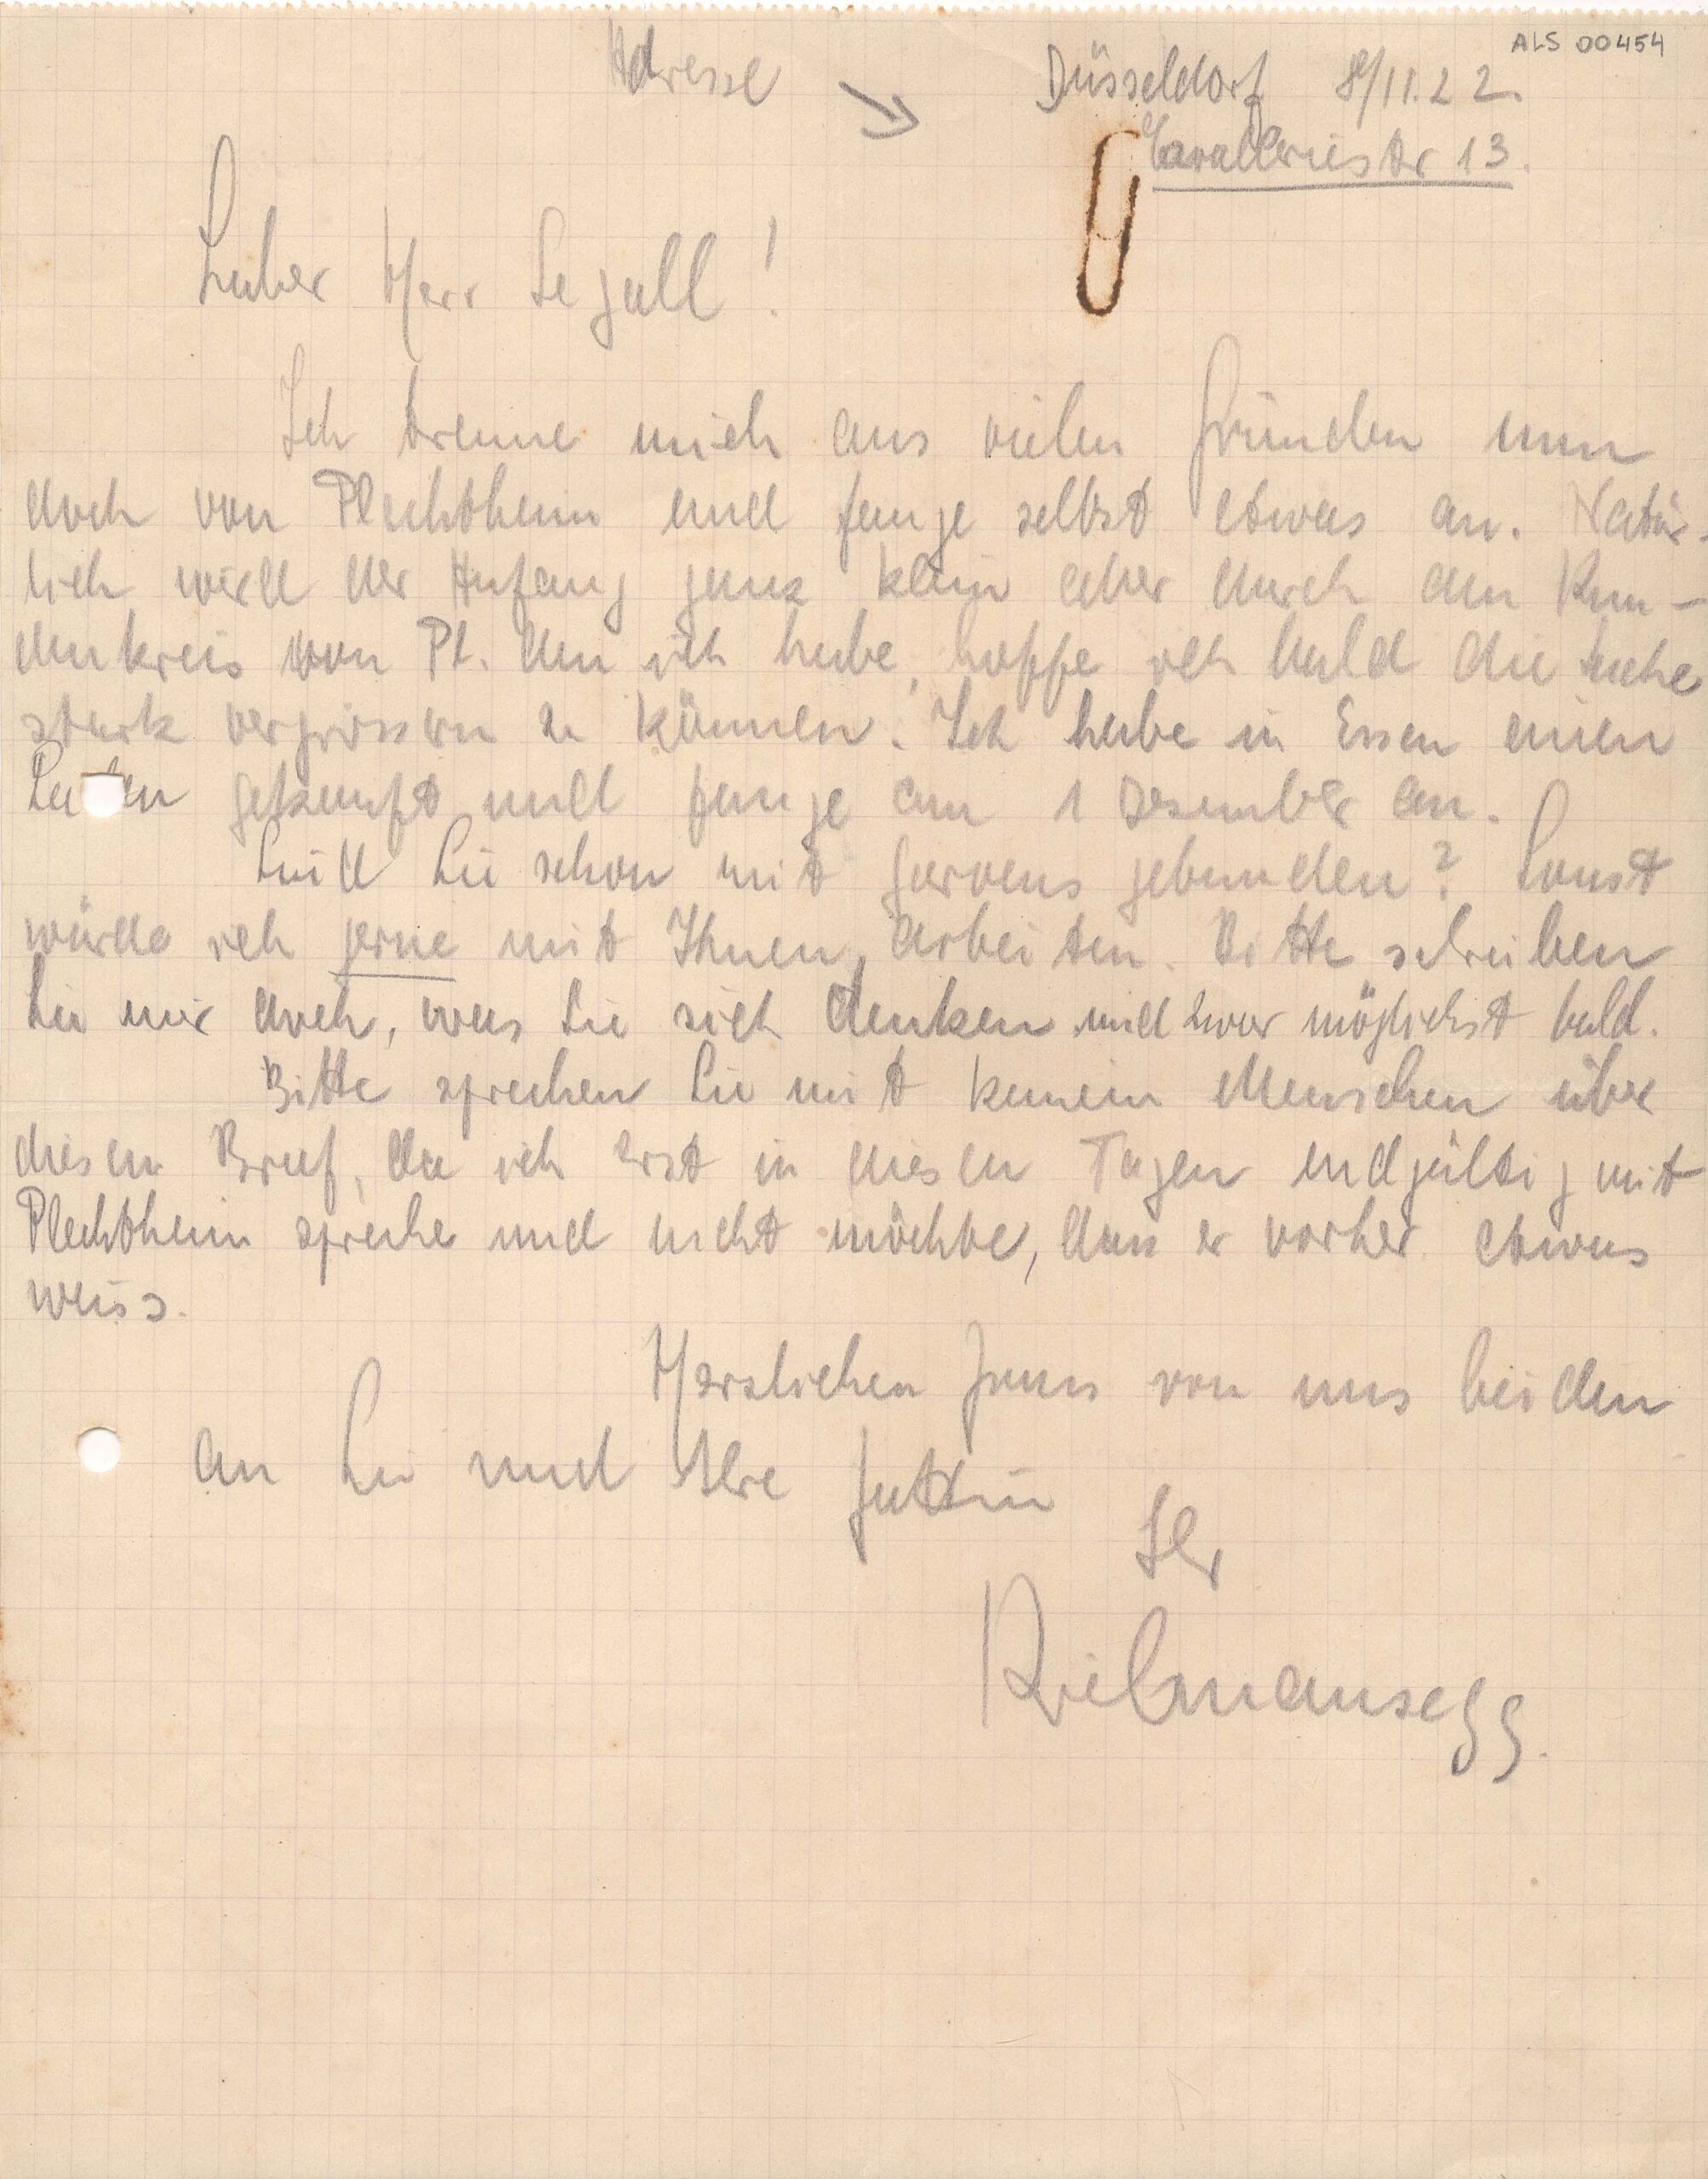 ALS 00454
Adresse → Düsseldorf 8/11.22.
Cavalleriestr 13.
Lieber Herr Segall!
Ich trenne mich aus vielen Gründen nun
doch von Flechtheim und fange selbst etwas an. Natür-
lich wird der Anfang ganz klein aber durch den Kun-
denkreis von Fl. den ich habe, hoffe ich bald die Sache
stark vergrössern zu können. Ich habe in Essen einen
Laden gekauft und fange am 1 Dezember an.
Sind Sie schon mit Garvens gebunden? Sonst
würde ich gerne mit Ihnen arbeiten. Bitte schreiben
Sie mir doch, was Sie sich denken und zwar möglichst bald.
Bitte sprechen Sie mit keinem Menschen über
diesen Brief, da ich erst in diesen Tagen endgültig mit
Flechtheim spreche und nicht möchte, dass er vorher etwas
weiss.
Herzlichen Gruss von uns beiden
an Sie und Ihre Gattin
Ihr
Kielmansegg.